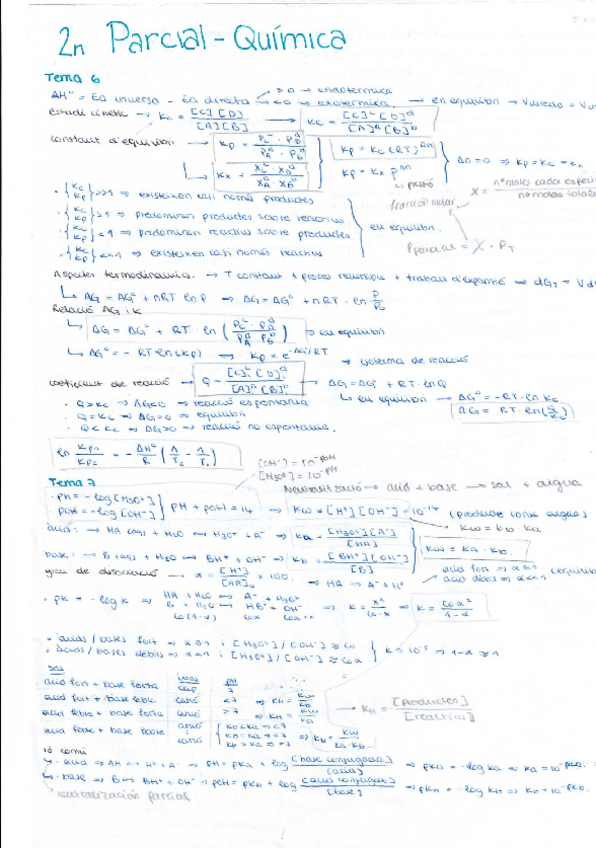 2n Parcial - Química
Tema 6
ΔHº = Ea inversa - Ea directa → >0 → endotermica
<0 → exotermica. → en equilibri → Vdirecta =
Estudi cinètic → Kc = [C][D] / [A][B] → Kc = [C]^c [D]^d / [A]^a [B]^b
constant d'equilibri → Kp = Pc^c · Pd^d / Pa^a · Pb^b
Kp = Kc (RT)^Δn
Δn = 0 ⇒ Kp = Kc = Kx
→ Kx = Xc^c · Xd^d / Xa^a · Xb^b
Kp = Kx P^Δn
pressió
fracción molar X = nº moles cada espe / nº moles totale
· {Kc Kp} >>1 ⇒ existeixen casi només productes
· {Kc Kp} >1 ⇒ predominen productes sobre reactius
· {Kc Kp} <1 ⇒ predominen reactius sobre productes
· {Kc Kp} <<1 ⇒ existeixen casi només reactius
en equilibri.
Pparcial = X · PT
Aspectes termodinamics. → T constant + procés reversible + treball d'expansió ⇒ dGT = Vd
↳ ΔG = ΔGº + nRT ln P ⇒ ΔG = ΔGº + nRT · ln P/P
Relació ΔG i K
↳ ΔG = ΔGº + RT · ln (Pc^c · Pd^d / Pa^a · Pb^b) ⇒ en equilibri
↳ ΔGº = - RT ln(Kp) ⇒ Kp = e^-ΔGº/RT
→ isoterma de reacció
coeficient de reacció → Q = [C]^c [D]^d / [A]^a [B]^b → ΔG = ΔGº + RT · ln Q
↳ en equilibri → ΔGº = - RT · ln Kc
ΔG = RT · ln(
· Q > Kc ⇒ ΔG<0 ⇒ reacció espontania
· Q = Kc ⇒ ΔG = 0 ⇒ equilibri
· Q < Kc ⇒ ΔG>0 ⇒ reacció no espontania.
ln Kp1/Kp2 = - ΔHº/R (1/T - 1/T)
[OH-] = 10^-pOH
[H3O+] = 10^-pH
Tema 7
Neutralització → acid + base → sal + aigua
· pH = -log[H3O+]
· pOH = -log[OH-]
pH + pOH = 14 ⇒ Kw = [H+][OH-] = 10^-14 (producte ionic aigua)
Kw = Kb · Ka
acid: → HA (aq) + H2O ⇔ H3O+ + A- ⇒ Ka = [H3O+][A-] / [HA]
Kw = Ka · Kb.
base: → B (aq) + H2O ⇔ BH+ + OH- ⇒ Kb = [BH+][OH-] / [B]
grau de dissociació → α = [H+] / [HA]o × 100. ⇒ HA → A- + H+
acid fort ⇒ α≈1
acid dèbil ⇒ α<<1
· pK = -log K ⇒ HA + H2O ⇔ A- + H3O+
B + H2O ⇔ HB+ + OH-
Co(1-α) Coα Coα
⇒ K = x² / Co-x ⇒ K = Co α² / 1-α
· àcids / bases fort ⇒ α≈1 ; [H3O+] / [OH-] ≈ Co
· àcids / bases dèbils ⇒ α<<1 ; [H3O+] / [OH-] ≈ Coα
K < 10^-5 ⇒ 1-α ≈ 1
Sal ions pH
acid fort + base forta cap 7
acid fort + base feble catió <7 ⇒ KH = Kw/Kb
acid feble + base forta anió >7 ⇒ KH = Kw/Ka
acid feble + base feble anió catió
⇒ KH = Kw / Ka · Kb
→ KH = [Productes] / [reactius]
ió comú
↳ acid ⇒ AH ⇔ H+ + A- ⇒ pH = pKa + log [base conjugada] / [acid] ⇒ pKa = -log Ka ⇒ Ka = 10^-pKa.
↳ base ⇒ B ⇔ BH+ OH- ⇒ pOH = pKb + log [acid conjugat] / [base] ⇒ pKb = -log Kb ⇒ Kb = 10^-pKb.
neutralización parcial